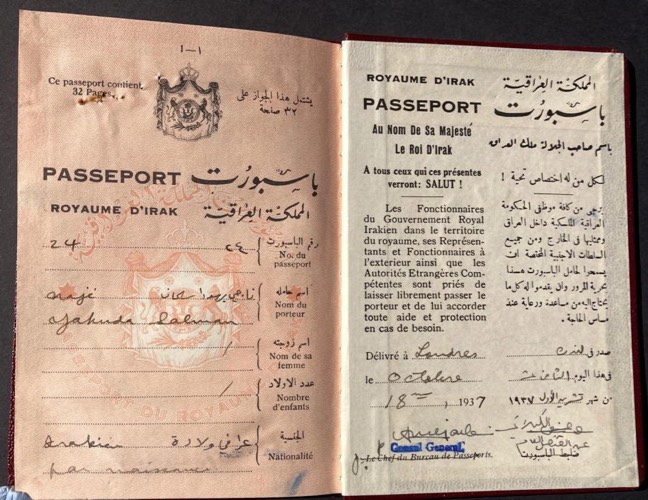 ١-1
Ce passeport contient
32 Pages.
يشتمل هذا الجواز على
٣٢ صفحة
PASSEPORT باسبورت
ROYAUME D'IRAK المملكة العراقية
24 ٢٤ رقم الباسبورت
No. du
passeport
Naji ناجي يهودا سلمان اسم حامله
Nom du
porteur
Yahuda Salman
/ اسم زوجته
Nom de sa
femme
/ عدد الاولاد
Nombre
d'enfants
Irakien عراقي ولادة الجنسية
Nationalité
par naissance
ROYAUME D'IRAK المملكة العراقية
PASSEPORT باسبورت
Au Nom De Sa Majesté
Le Roi D'Irak
باسم صاحب الجلالة ملك العراق
A tous ceux qui ces présentes
verront: SALUT !
لكل من له اختصاص تحية !
Les Fonctionnaires
du Gouvernement Royal
Irakien dans le territoire
du royaume, ses Représen-
tants et Fonctionnaires à
l'exterieur ainsi que les
Autorités Etrangères Com-
pétentes sont priés de
laisser librement passer le
porteur et de lui accorder
toute aide et protection
en cas de besoin.
يرجى من كافة موظفي الحكومة
العراقية الملكية داخل العراق
وممثليها في الخارج ومن جميع
السلطات الاجنبية المختصة ان
يسمحوا لحامل الباسبورت هذا
بحرية المرور وان يقدموا له كل ما
يحتاج اليه من مساعدة ورعاية عند
مساس الحاجة.
Délivré à Londres صدر في لندن
le Octobre في هذا اليوم الثامن عشر
18 , 1937 من شهر تشرين الاول ١٩٣٧
Consul General
Le Chef du Bureau de Passeports.
ضابط الباسبورت